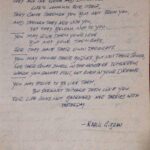 THEY COME THROUGH YOU BUT NOT FROM YOU,
AND THOUGH THEY ARE WITH YOU,
YET THEY BELONG NOT TO YOU.
YOU MAY GIVE THEM YOUR LOVE
BUT NOT YOUR THOUGHTS
FOR THEY HAVE THEIR OWN THOUGHTS.
YOU MAY HOUSE THEIR BODIES BUT NOT THEIR SOULS,
FOR THEIR SOULS DWELL IN THE HOUSE OF TOMORROW,
WHICH YOU CANNOT VISIT, NOT EVEN IN YOUR DREAMS.
YOU MAY STRIVE TO BE LIKE THEM,
BUT SEEK NOT TO MAKE THEM LIKE YOU
FOR LIFE GOES NOT BACKWARD NOR TARRIES WITH
YESTERDAY.